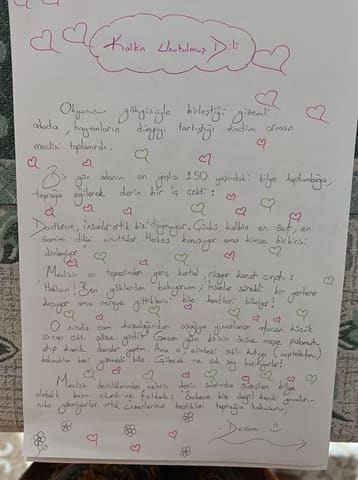 Kalbin Unutulmuş Dili
Okyanusun gökyüzüyle birleştiği gizemli
adada, hayvanların dünyayı tartıştığı kadim orman
meclisi toplanırdı.
Bir gün adanın en yaşlısı 150 yaşındaki bilge kaplumbağa,
toprağa eğilerek derin bir iç çekti:
Dostlarım, insanlar artık bizi duymuyor. Çünkü kalbin en saf, en
samimi dilini unuttular. Herkes konuşuyor ama kimse birbirini
dinlemiyor.
Meclisin en tepesinden genç kartal rüzgar kanat çırptı:
"Haklısın! Ben göklerden bakıyorum, insanlar sürekli bir yerlere
koşuyor ama nereye gittiklerini bile kendileri bilmiyor!
O sırada çam kozalağından aşağıya yuvarlanan afacan küçük
sincap söze girdi: Geçen gün birinin önüne meşe palamutu
atıp komik danslar yaptım. Ama o, elindeki ışıklı kutuya
bakmaktan beni görmedi bile. Gülecek ne çok şey
Meclisin derinliklerinden nehrin derin sularında süzülen bilge
alabalık başını çıkardı ve fısıldadı: Sadece bizi değil kendi
görmüyorlar artık. Üzerlerine bastıkları toprağın kokusunu,
Devamı